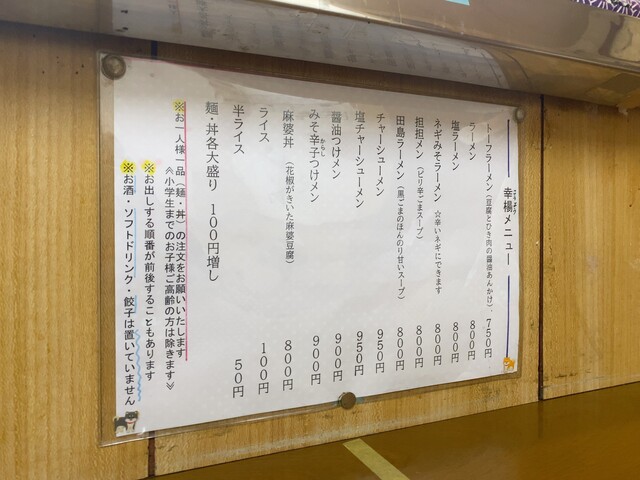 幸楊メニュー
トーフラーメン（豆腐とひき肉の醤油あんかけ） 750円
ラーメン 800円
塩ラーメン 800円
ネギみそラーメン ☆辛いネギにできます 800円
担担メン（ピリ辛ごまスープ） 800円
田島ラーメン（黒ごまのほんのり甘いスープ） 800円
チャーシューメン 950円
塩チャーシューメン 950円
醤油つけメン 900円
みそ辛子つけメン 900円
からし
麻婆丼（花椒がきいた麻婆豆腐） 800円
ライス 100円
半ライス 50円
麺・丼各大盛り 100円増し
※お一人様一品（麺・丼）の注文をお願いいたします
≪小学生までのお子様ご高齢の方は除きます≫
※お出しする順番が前後することもあります
※お酒・ソフトドリンク・餃子は置いていません